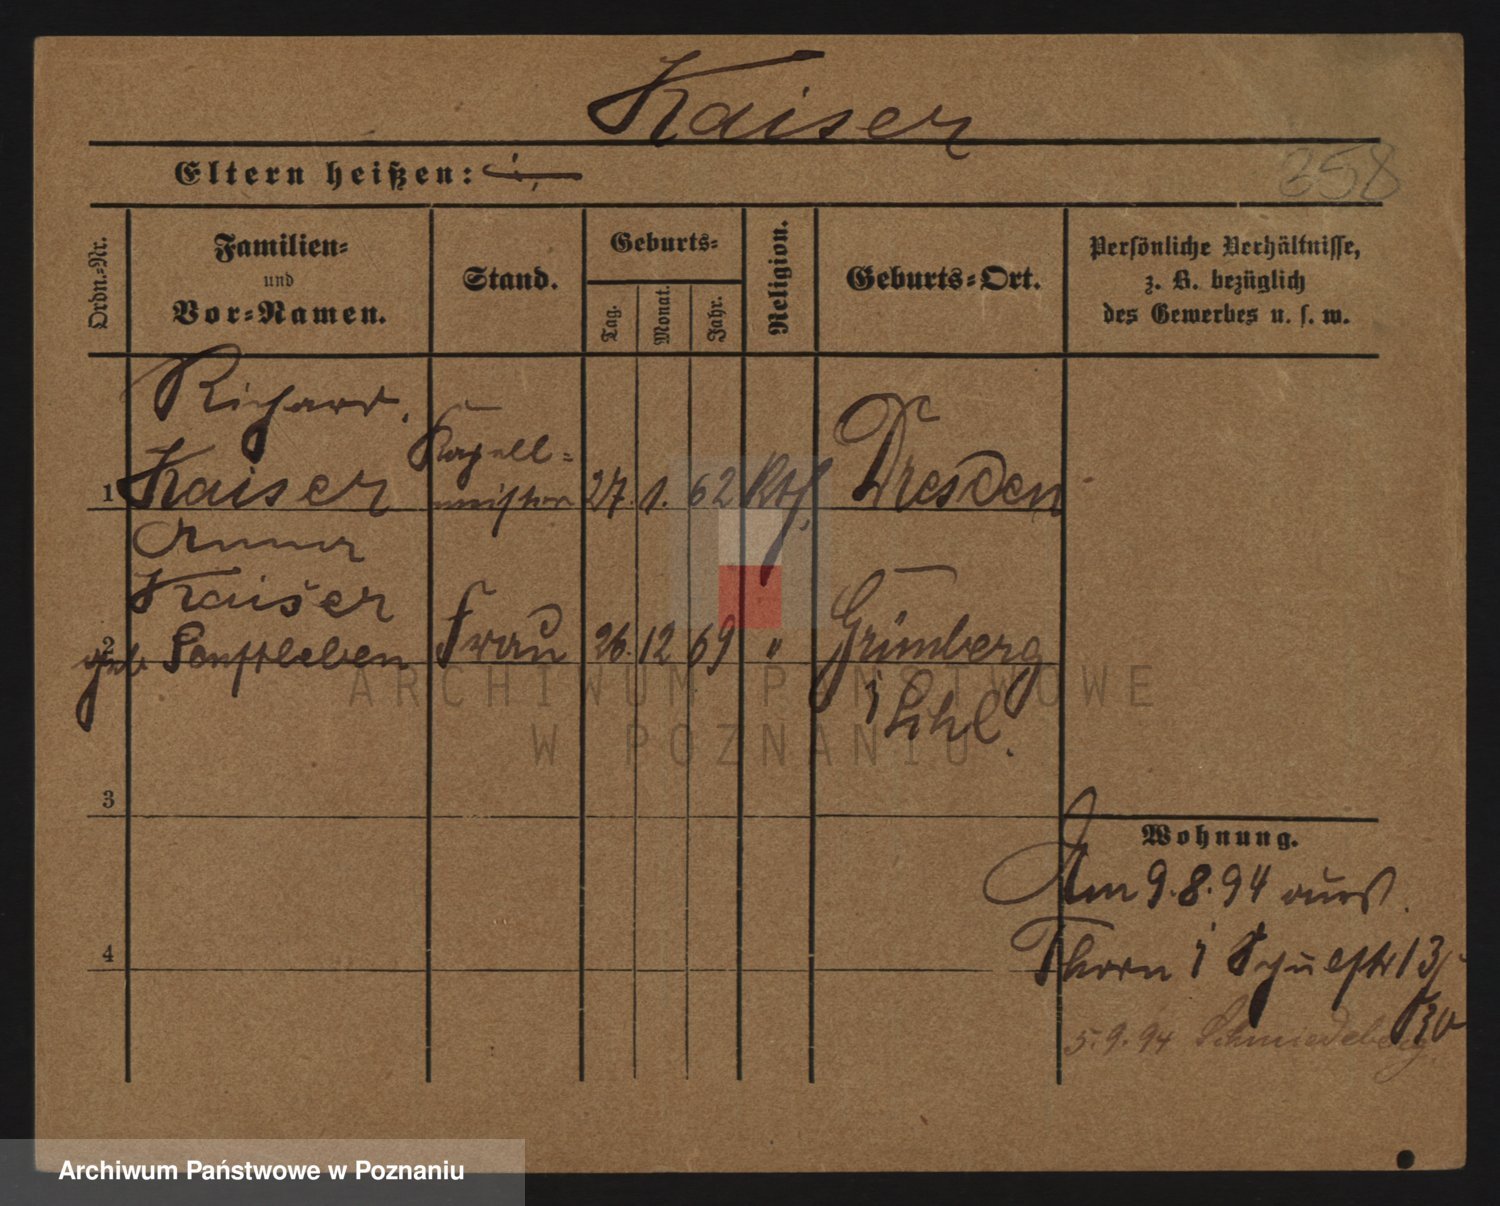 Kaiser
Eltern heißen:
358
Ordn.-Nr.
Familien-
und
Vor-Namen.
Stand.
Geburts-
Tag.
Monat.
Jahr.
Religion.
Geburts-Ort.
Persönliche Verhältnisse,
z. B. bezüglich
des Gewerbes u. s. w.
Richard.
1 Kaiser Kapell-
meister 27. 1. 62 Kth. Dresden
Anna
Kaiser
2 geb Senftleben Frau 26. 12 69 " Grünberg
i Schl.
3
Wohnung.
Am 9.8.94 aus
4 Thorn
5.9.94 Schmiedeberg
ARCHIWUM PAŃSTWOWE
W POZNANIU
Archiwum Państwowe w Poznaniu